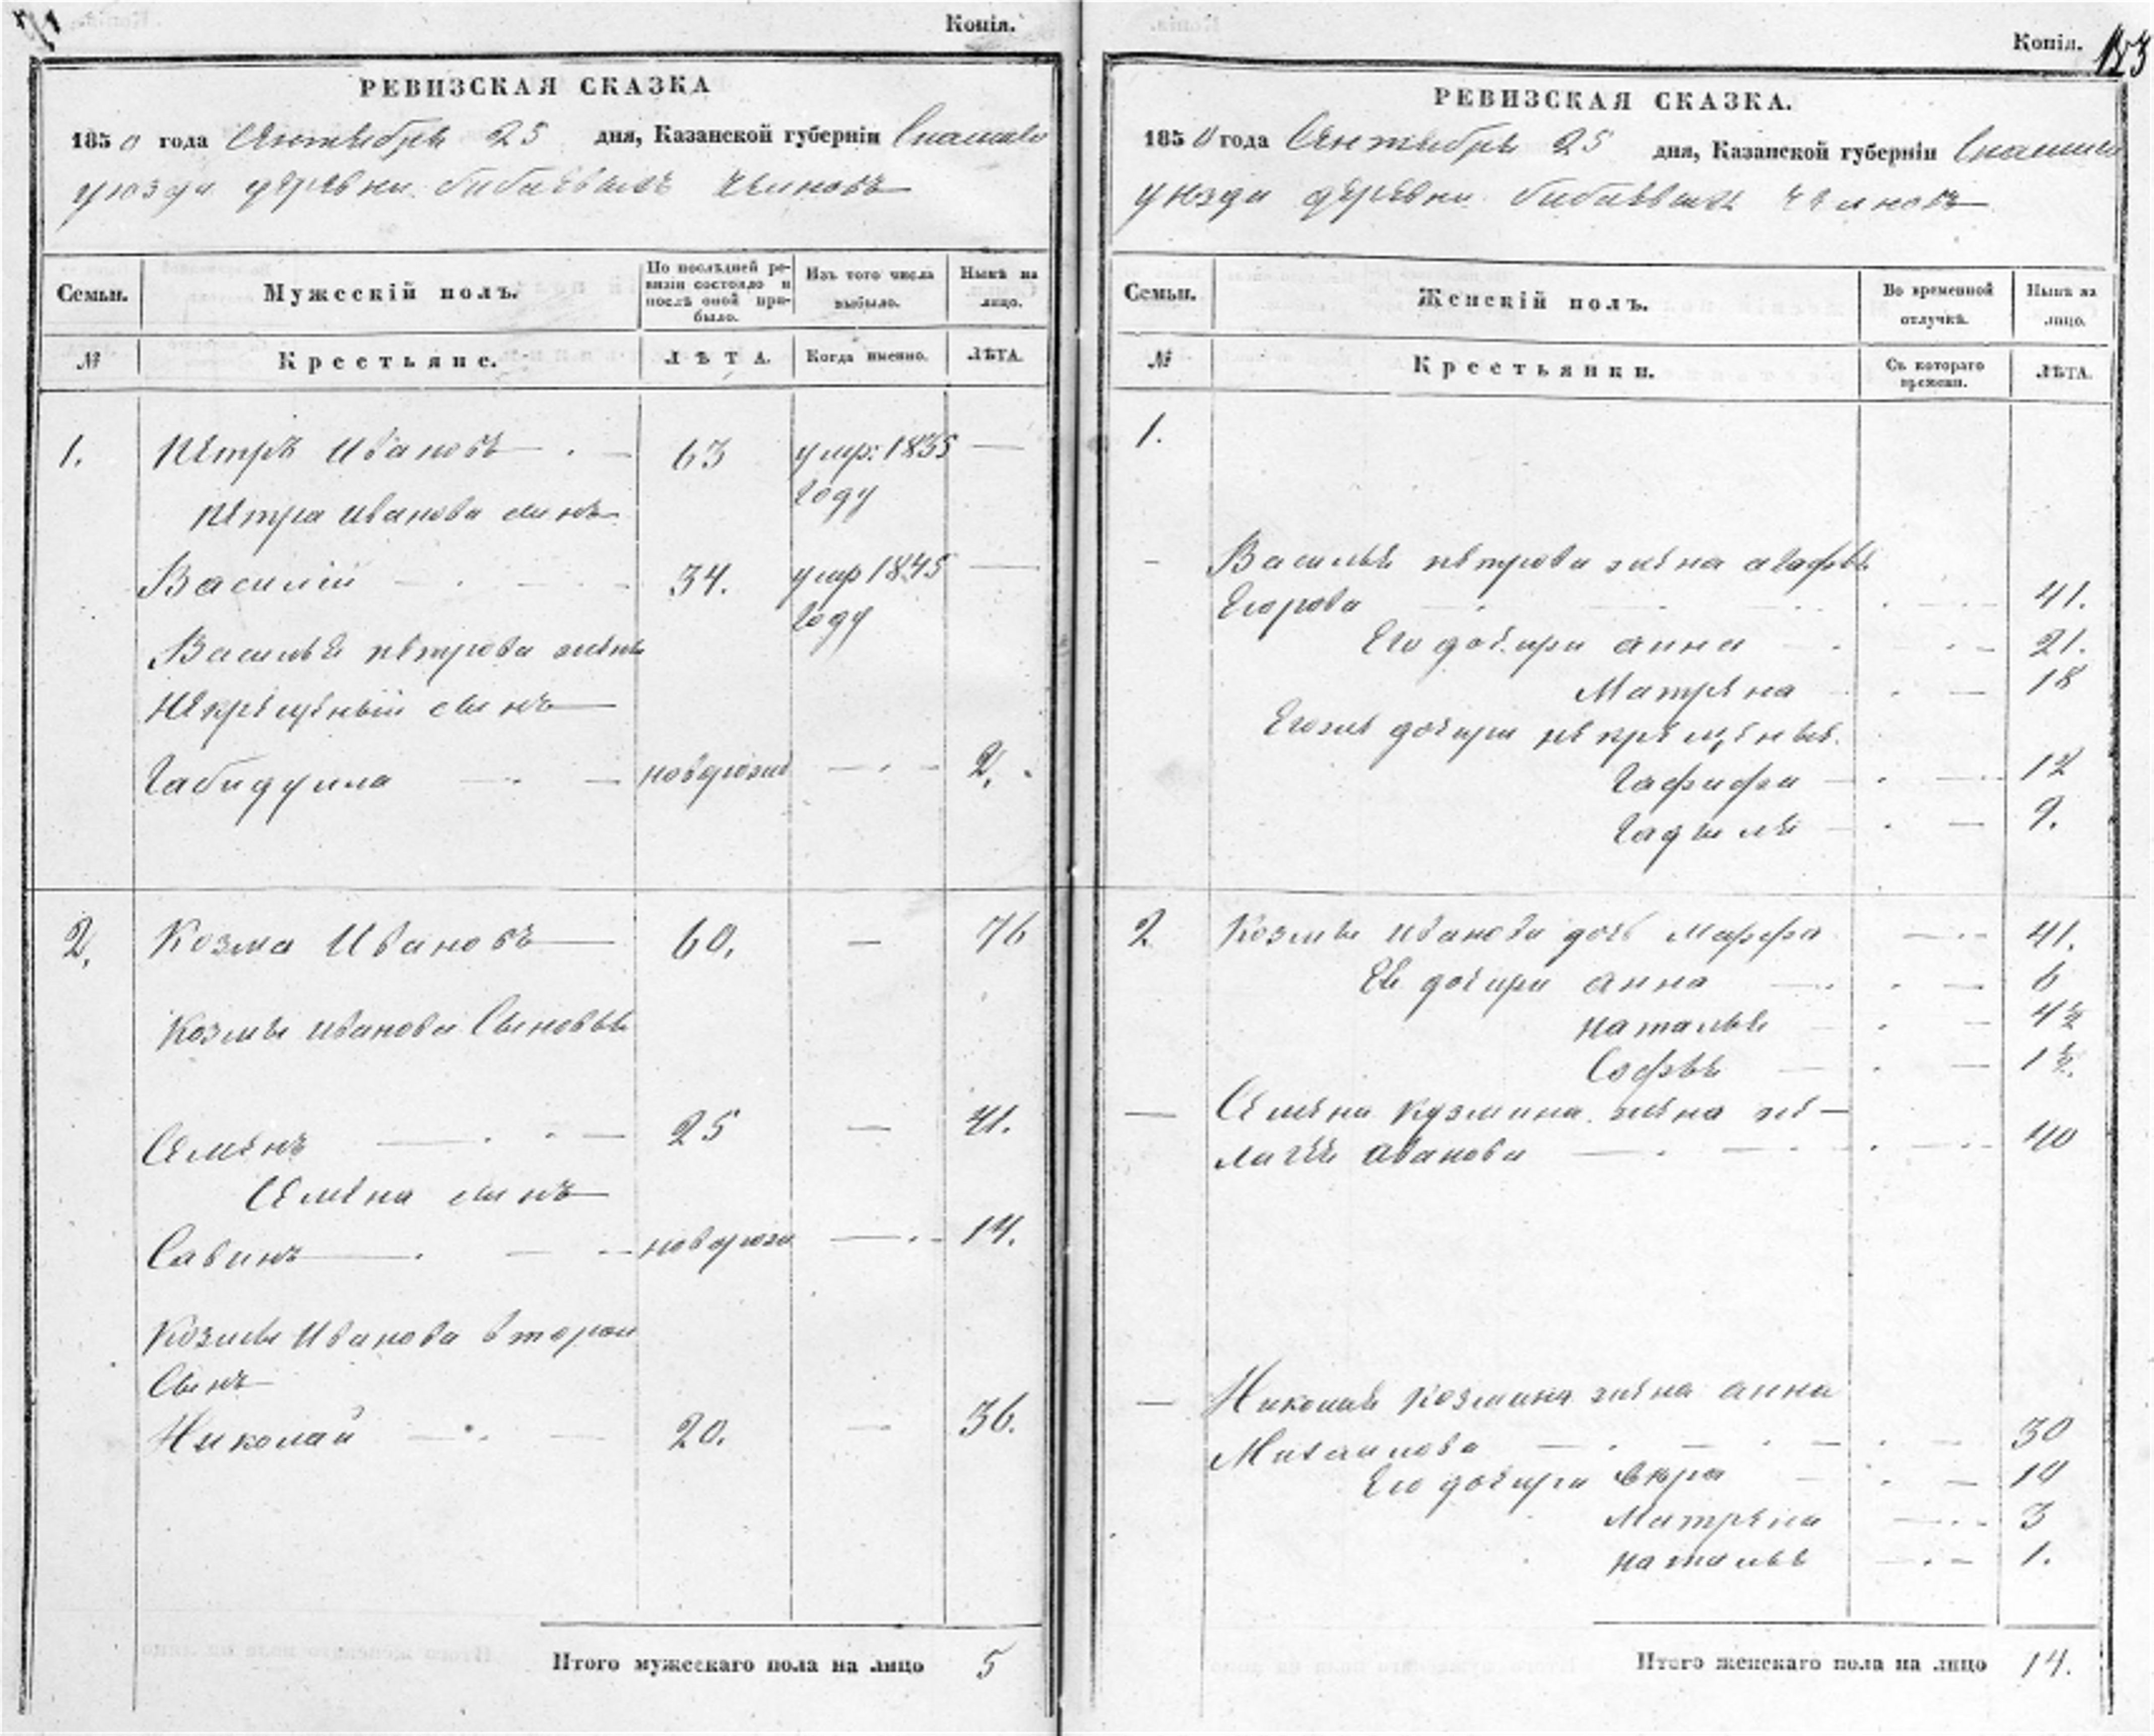 Копія.
РЕВИЗСКАЯ СКАЗКА
1850 года Сентября 25 дня, Казанской губерніи Спаскаго
уюзда деревни Бибаевыхъ челновъ
Семьи. Мужескій полъ. По послѣдней ревизіи состояло и послѣ оной прибыло. Изъ того числа выбыло. Нынѣ на лицо.
№ Крестьяне. ЛѢТА. Когда именно. ЛѢТА.
1. Петръ Ивановъ 63 умр: 1835 году —
Петра Иванова сынъ
Василій 34. умр 1845 году —
Василья петрова
Некрещеный сынъ
Габидулла новорожд 2.
2. Козма Ивановъ 60. — 76
Козмы Иванова Сыновья
Семенъ 25 — 41.
Семена сынъ
Савинъ новорож 14.
Козмы Иванова второй
Сынъ
Николай 20. — 36.
Итого мужескаго пола на лицо 5
Копія. 123
РЕВИЗСКАЯ СКАЗКА.
1850 года Сентября 25 дня, Казанской губерніи Спаскаго
уюзда деревни Бибаевыхъ челновъ
Семьи. Женскій полъ. Во временной отлучкѣ. Нынѣ на лицо.
№ Крестьянки. Съ котораго времени. ЛѢТА.
1.
— Василья петрова жена агафья
Егорова 41.
Его дочери анна 21.
Матрена 18
Егоже дочери некрещеные.
Гафифа 12
Гадиле 9.
2 Козмы Иванова дочь Марфа 41.
Ее дочери анна 6
наталья 4½
Софья 1½.
— Семена Кузмина жена пе-
лагѣя Иванова 40
— Николая Козмина жена анна
Михаилова 30
Его дочери вера 14
Матрена 3
наталья 1.
Итого женскаго пола на лицо 14.